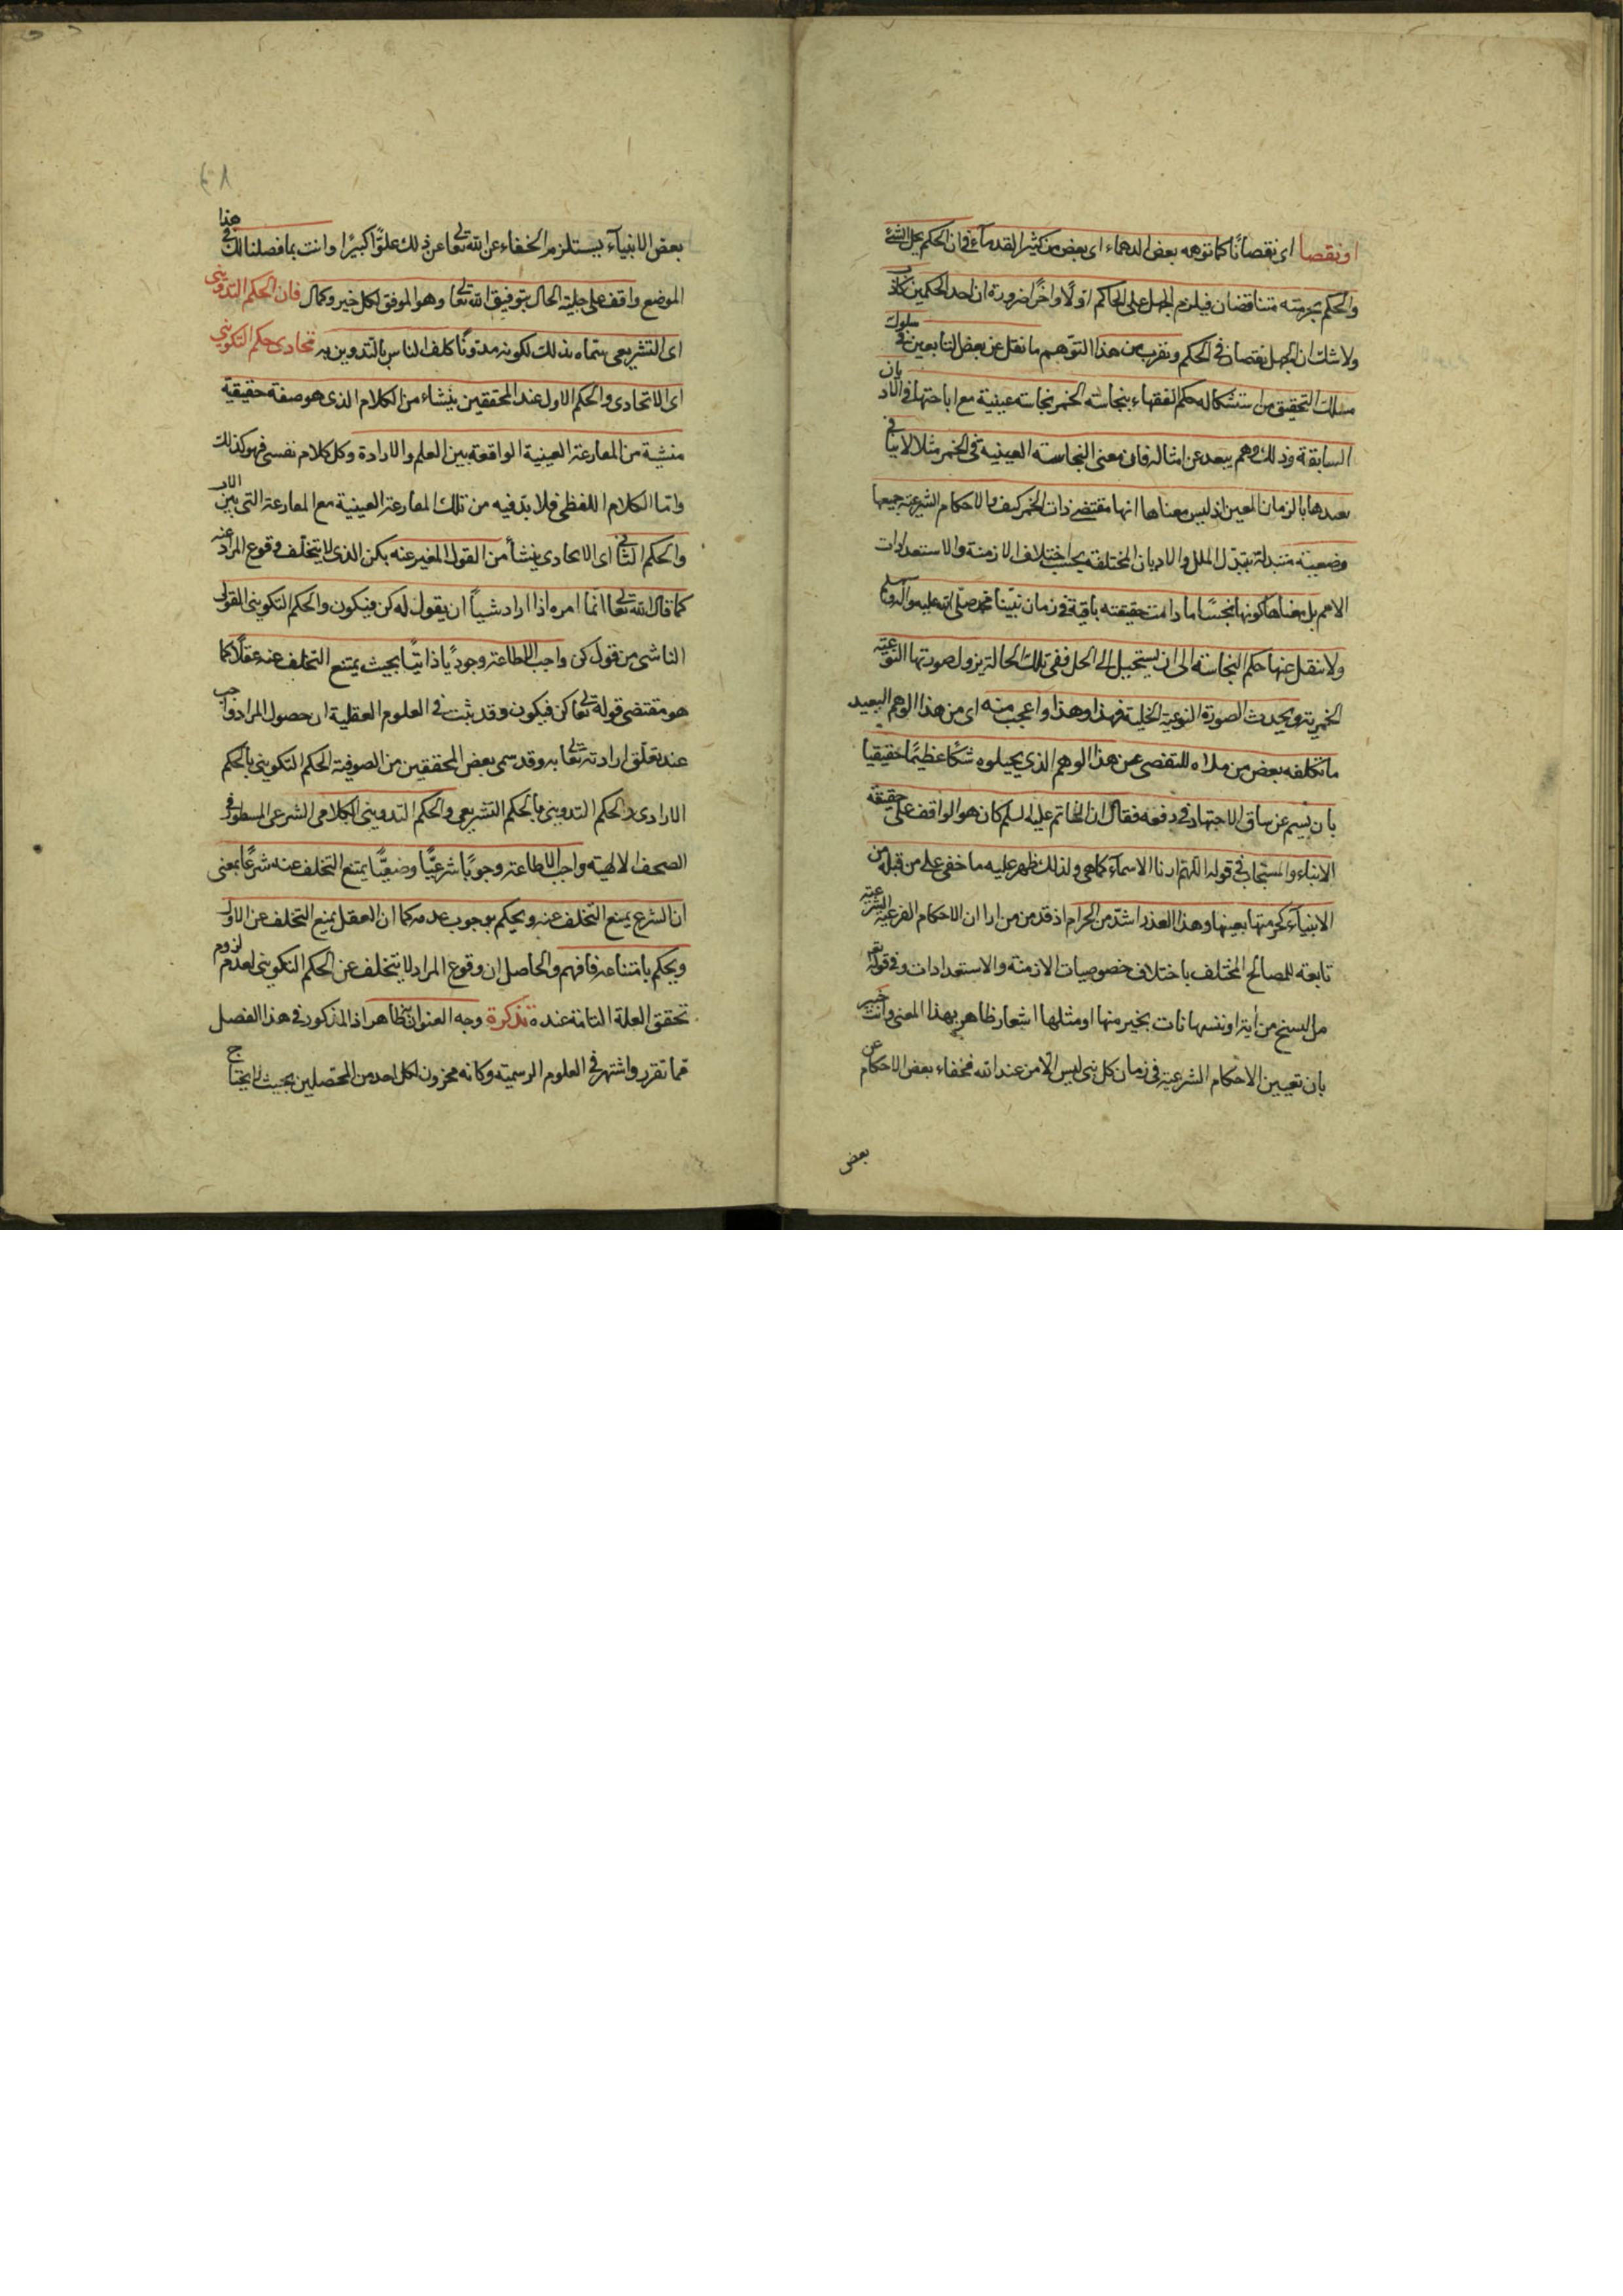 او نقصا اى نقصانًا كما توهمه بعض الدهماء اى بعض من كثير القدماء فان الحكم بحل الشئ
والحكم بحرمته متناقضان فيلزم الجهل على الحاكم اوّلًا واخرًا ضرورة ان احد الحكمين كاذب
ولا شك ان الجهل نقصان فى الحكم ويقرب من هذا التوّهم ما نقل عن بعض التابعين فى سلوك
مسلك التحقيق من استشكاله حكم الفقهاء بنجاسة الخمر نجاسة عينية مع اباحتها فى الاديان
السابقة وذلك وهم يبعد عن امثاله فان معنى النجاسة العينية فى الخمر مثلا لا ينافى
بعدها بالزمان المعين اذ ليس معناها انها مقتضى ذات الخمر كيف والاحكام الشرعية جميعها
وضعيية متبدلة بتبدّل الملل والاديان المختلفة بحسب اختلاف الازمنة والاستعدادات
الامم بل معناها كونها نجسًا ما دامت حقيقته باقية فى زمان نبيّنا محمد صلى الله عليه وآله وسلم
ولا ينقل عنها حكم النجاسة الى ان يستحيل الى الخل ففى تلك الحالة يزول صورتها النوعية
الخمرية ويحدث الصورة النوعية الخلية فهذا وهذا واعجب منه اى من هذا الوهم البعيد
ما تكلفه بعض من ملاه للتفصى عن هذا الوهم الذى يحيلوه شكا عظيمًا حقيقيا
بان يسم عن ساق الاجتهاد فى دفعه فقال ان الخاتم عليه السلم كان هو الواقف على حقيقة
الانباء والمستجاب فى قوله اللهم ارنا الاسماء كما هى ولذلك ظهر عليه ما خفى على من قبله من
الانبيآء كحرمتها بعينها وهذا العذر اشدّ من الجرام اذ قد من من ارا ان الاحكام الفرعية الشرعية
تابعة للمصالح المختلف باختلاف خصوصيات الازمنة والاستعدادات وفى قوله تعه
ما ننسخ من اية او ننسها نات بخير منها او مثلها اشعار ظاهر بهذا المعنى وانت خبير
بان تعيين الاحكام الشرعية فى زمان كل نبى ليس الا من عند الله فخفاء بعض الاحكام عن
بعض
بعض الانبيآء يستلزم الخفاء عن الله تعالى عن ذلك علوًّا كبيرًا وانت بما فصلنا لك فى هذا
الموضع واقف على جلية الحال بتوفيق الله تعالى وهو الموفق لكل خير وكمال فان الحكم التدوينى
اى التشريعى سماه بذلك لكونه مدوّنًا كلف الناس بالتدوين به تحادى حكم التكوينى
اى الاتحادى والحكم الاول عند المحققين ينشاء من الكلام الذى هو صفة حقيقية
منشية من المعارعة العينية الواقعة بين العلم والارادة وكل كلام نفسى فهو كذلك
وامّا الكلام اللفظى فلا بدّ فيه من تلك المعارعة العينية مع المعارعة التى بين
والحكم الثانى اى الايحادى ينشأ من القول المغير عنه بكن الذى لا يتخلّف وقوع المراد عنه
كما قال الله تعالى انما امره اذا اراد شيئًا ان يقول له كن فيكون والحكم التكوينى القولى
الناشى من قول كن واجب الاطاعة وجوبًا ذاتيًّا بحيث يمتنع التخلف عنه عقلًا كما
هو مقتضى قوله تعالى كن فيكون وقد ثبت فى العلوم العقلية ان حصول المراد واجب
عند تعلّق ارادته تعالى به وقد سمى بعض المحققين من الصوفية الحكم التكوينى بالحكم
الارادى والحكم التدوينى بالحكم التشريعى والحكم التدوينى الكلامى الشرعى المسطور فى
الصحف الالهية واجب الاطاعة وجوبًا شرعيًّا وضعيًّا يمتنع التخلف عنه شرعًا بمعنى
ان الشرع يمنع التخلف عنه ويحكم بوجوب عدمه كما ان العقل يمنع التخلف عن الاول
ويحكم بامتناعه فافهم والحاصل ان وقوع المراد لا يتخلف عن الحكم التكوينى لعدم لزوم
تحقق العلة التامة عنده تذكرة وجه العنوان بها ظاهر اذ المذكور فى هذا الفصل
مما تقرر واشتهر فى العلوم الرسمية وكانه مخزون لكل احد من المحصّلين بحيث لا يحتاج